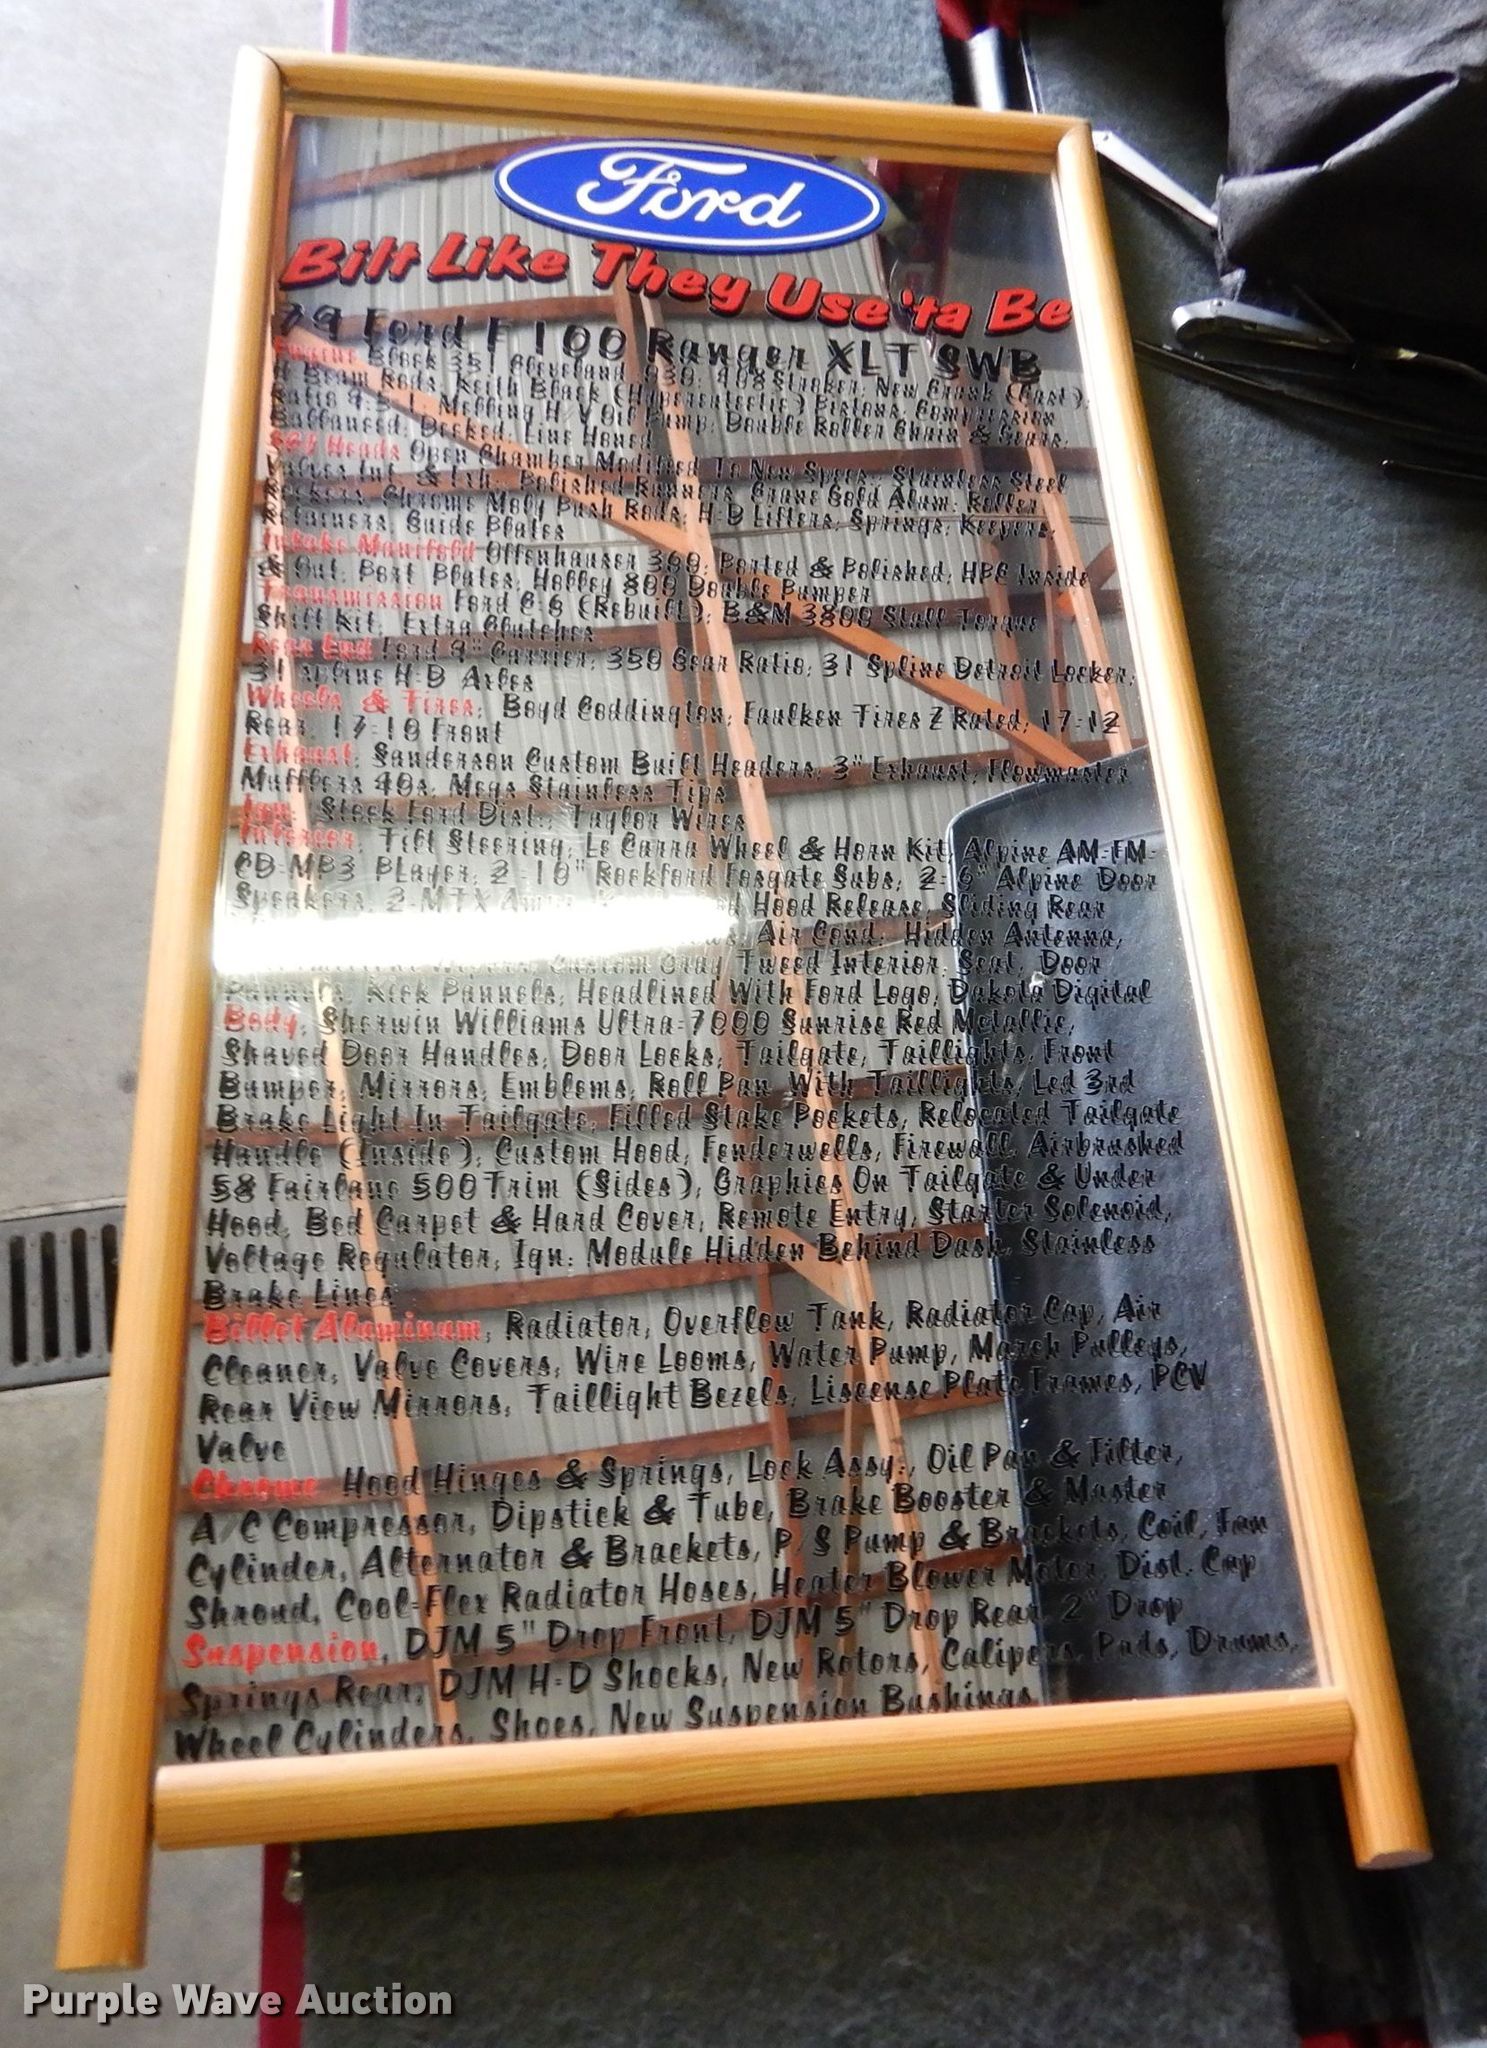 Ford
Bilt Like They Use'ta Be
79 Ford F 100 Ranger XLT SWB
Engine Block 351 Cleveland .030, 408 Stroker, New Crank (Cast),
H Beam Rods, Keith Black (Hypereutectic) Pistons, Compression
Ratio 9:5-1, Melling H-V Oil Pump, Double Roller Chain & Gears,
Ballanced, Decked, Line Honed
Heads Open Chamber Modified To New Specs, Stainless Steel
Valves Int. & Exh., Polished Runners, Crane Gold Alum. Roller
Rockers, Chrome Moly Push Rods, H-D Lifters, Springs, Keepers,
Retainers, Guide Plates
Intake Manifold Offenhauser 360, Ported & Polished, HPC Inside
& Out, Port Plates, Holley 800 Double Pumper
Transmission Ford C-6 (Rebuilt), B&M 3800 Stall Torque
Shift Kit, Extra Clutches
Rear End Ford 9" Carrier, 350 Gear Ratio, 31 Spline Detroit Locker,
31 Spline H-D Axles
Wheels & Tires, Boyd Coddington, Faulken Tires Z Rated, 17-12
Rear, 17-10 Front
Exhaust, Sanderson Custom Built Headers, 3" Exhaust, Flowmaster
Mufflers 40s, Mega Stainless Tips
Ign. Stock Ford Dist., Taylor Wires
Interior, Tilt Steering, Le Carra Wheel & Horn Kit, Alpine AM-FM-
CD-MP3 PLayer, 2-10" Rockford Fosgate Subs, 2-6" Alpine Door
Speakers, 2-MTX Hood Release, Sliding Rear
Air Cond. Hidden Antenna,
Wipers, Custom Gray Tweed Interior, Seat, Door
Pannels, Kick Pannels, Headlined With Ford Logo, Dakota Digital
Body, Sherwin Williams Ultra-7000 Sunrise Red Metallic,
Shaved Door Handles, Door Locks, Tailgate, Taillights, Front
Bumper, Mirrors, Emblems, Roll Pan With Taillights, Led 3rd
Brake Light In Tailgate, Filled Stake Pockets, Relocated Tailgate
Handle (Inside), Custom Hood, Fenderwells, Firewall, Airbrushed
58 Fairlane 500 Trim (Sides), Graphics On Tailgate & Under
Hood, Bed Carpet & Hard Cover, Remote Entry, Starter Solenoid,
Voltage Regulator, Ign. Module Hidden Behind Dash, Stainless
Brake Lines
Billet Aluminum, Radiator, Overflow Tank, Radiator Cap, Air
Cleaner, Valve Covers, Wire Looms, Water Pump, March Pulleys,
Rear View Mirrors, Taillight Bezels, Liscense Plate Frames, PCV
Valve
Chrome Hood Hinges & Springs, Lock Assy., Oil Pan & Filter,
A/C Compressor, Dipstick & Tube, Brake Booster & Master
Cylinder, Alternator & Brackets, P/S Pump & Brackets, Coil, Fan
Shroud, Cool-Flex Radiator Hoses, Heater Blower Motor, Dist. Cap
Suspension, DJM 5" Drop Front, DJM 5" Drop Rear, 2" Drop
Springs Rear, DJM H-D Shocks, New Rotors, Calipers, Pads, Drums,
Wheel Cylinders, Shoes, New Suspension Bushings
Purple Wave Auction